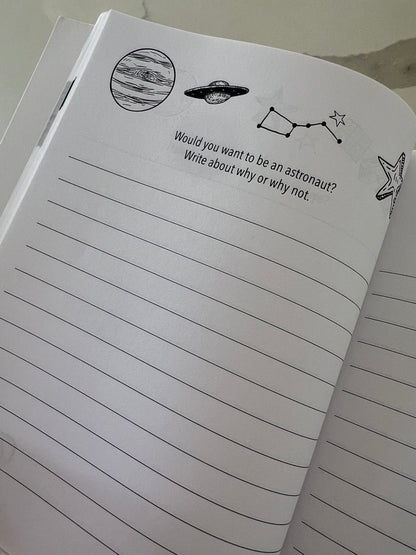 Would you want to be an astronaut?
Write about why or why not.